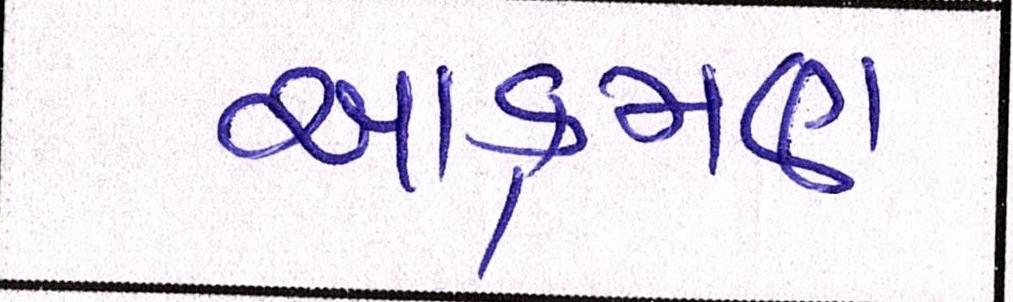 આક્રમણ